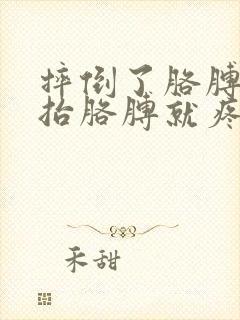 摔倒了胳膊
抬胳膊就疼
禾甜